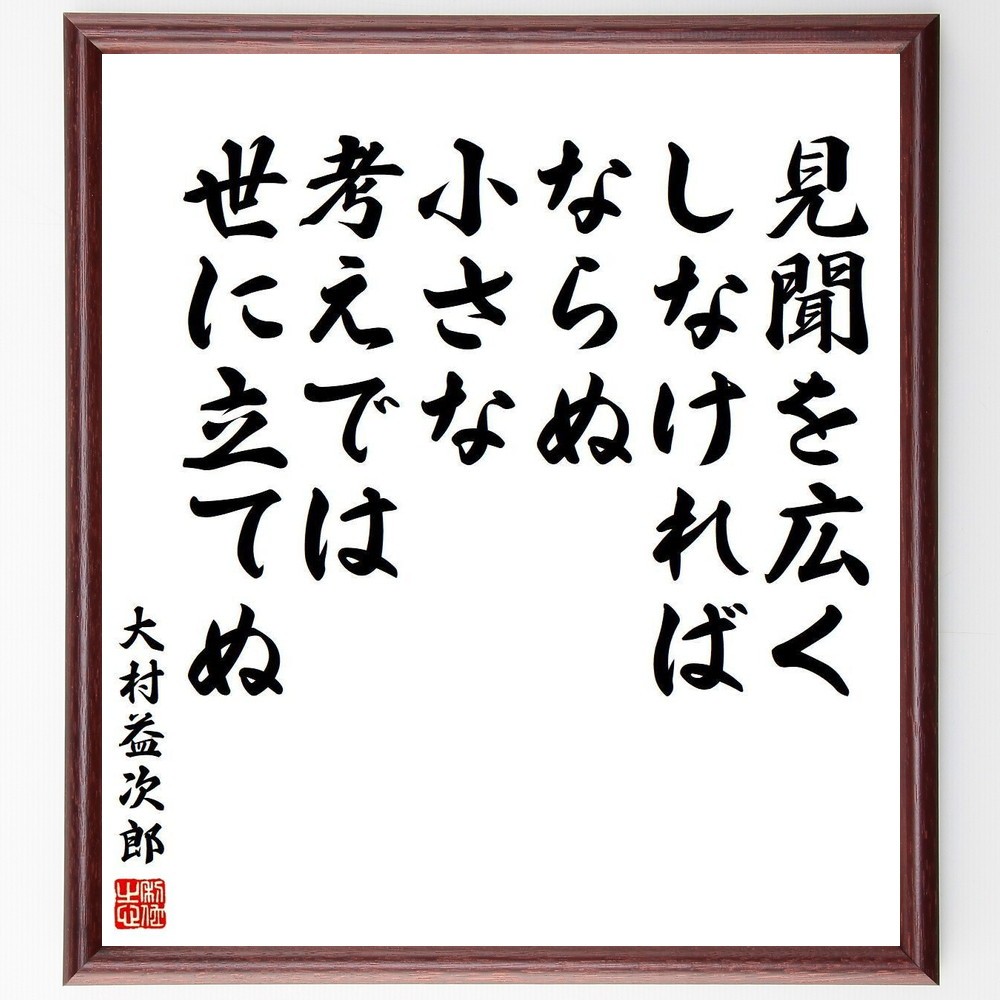 見聞を広く
しなければ
ならぬ
小さな
考えでは
世に立てぬ
大村益次郎